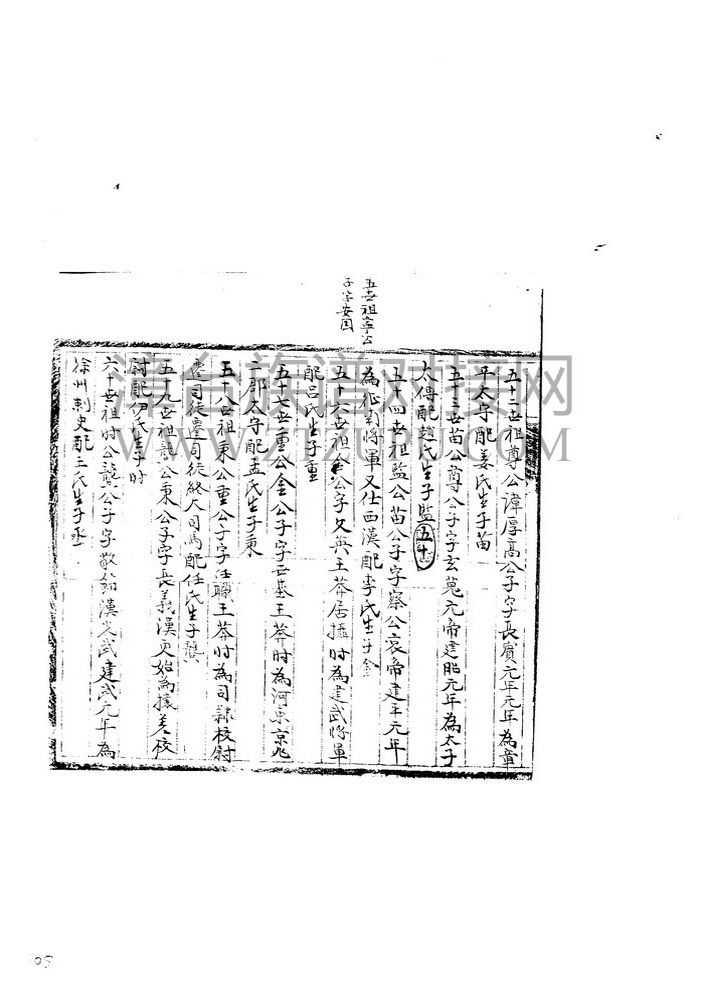 五世祖寧公
子字安国
五十二世祖尊公諱厚高公子字長賓元年元年為章
平太守配姜氏生子苗
五十三世苗公尊公子字玄菟元帝建昭元年為太子
太傅配趙氏生子監五十
五十四世祖監公苗公子字察公哀帝建平元年
為征南將軍又仕西漢配李氏生子金
五十六世祖金公字文興王莽居攝时為建武將軍
配呂氏生子重
五十七世重公金公子字丕基王莽时為河東京兆
二郡太守配孟氏生子秉
五十八世祖秉公重公子字任職王莽时為司隸校尉
遷司徒遷司徒終大司馬配任氏生子龔
五十九世祖龔公秉公子字長義漢更始為援差校
尉配尹氏生子时
六十世祖时公龔公子字敬銘漢光武建武元年為
徐州刺史配王氏生子丞
津台族谱对接网
WWW.ZTZUPU.COM